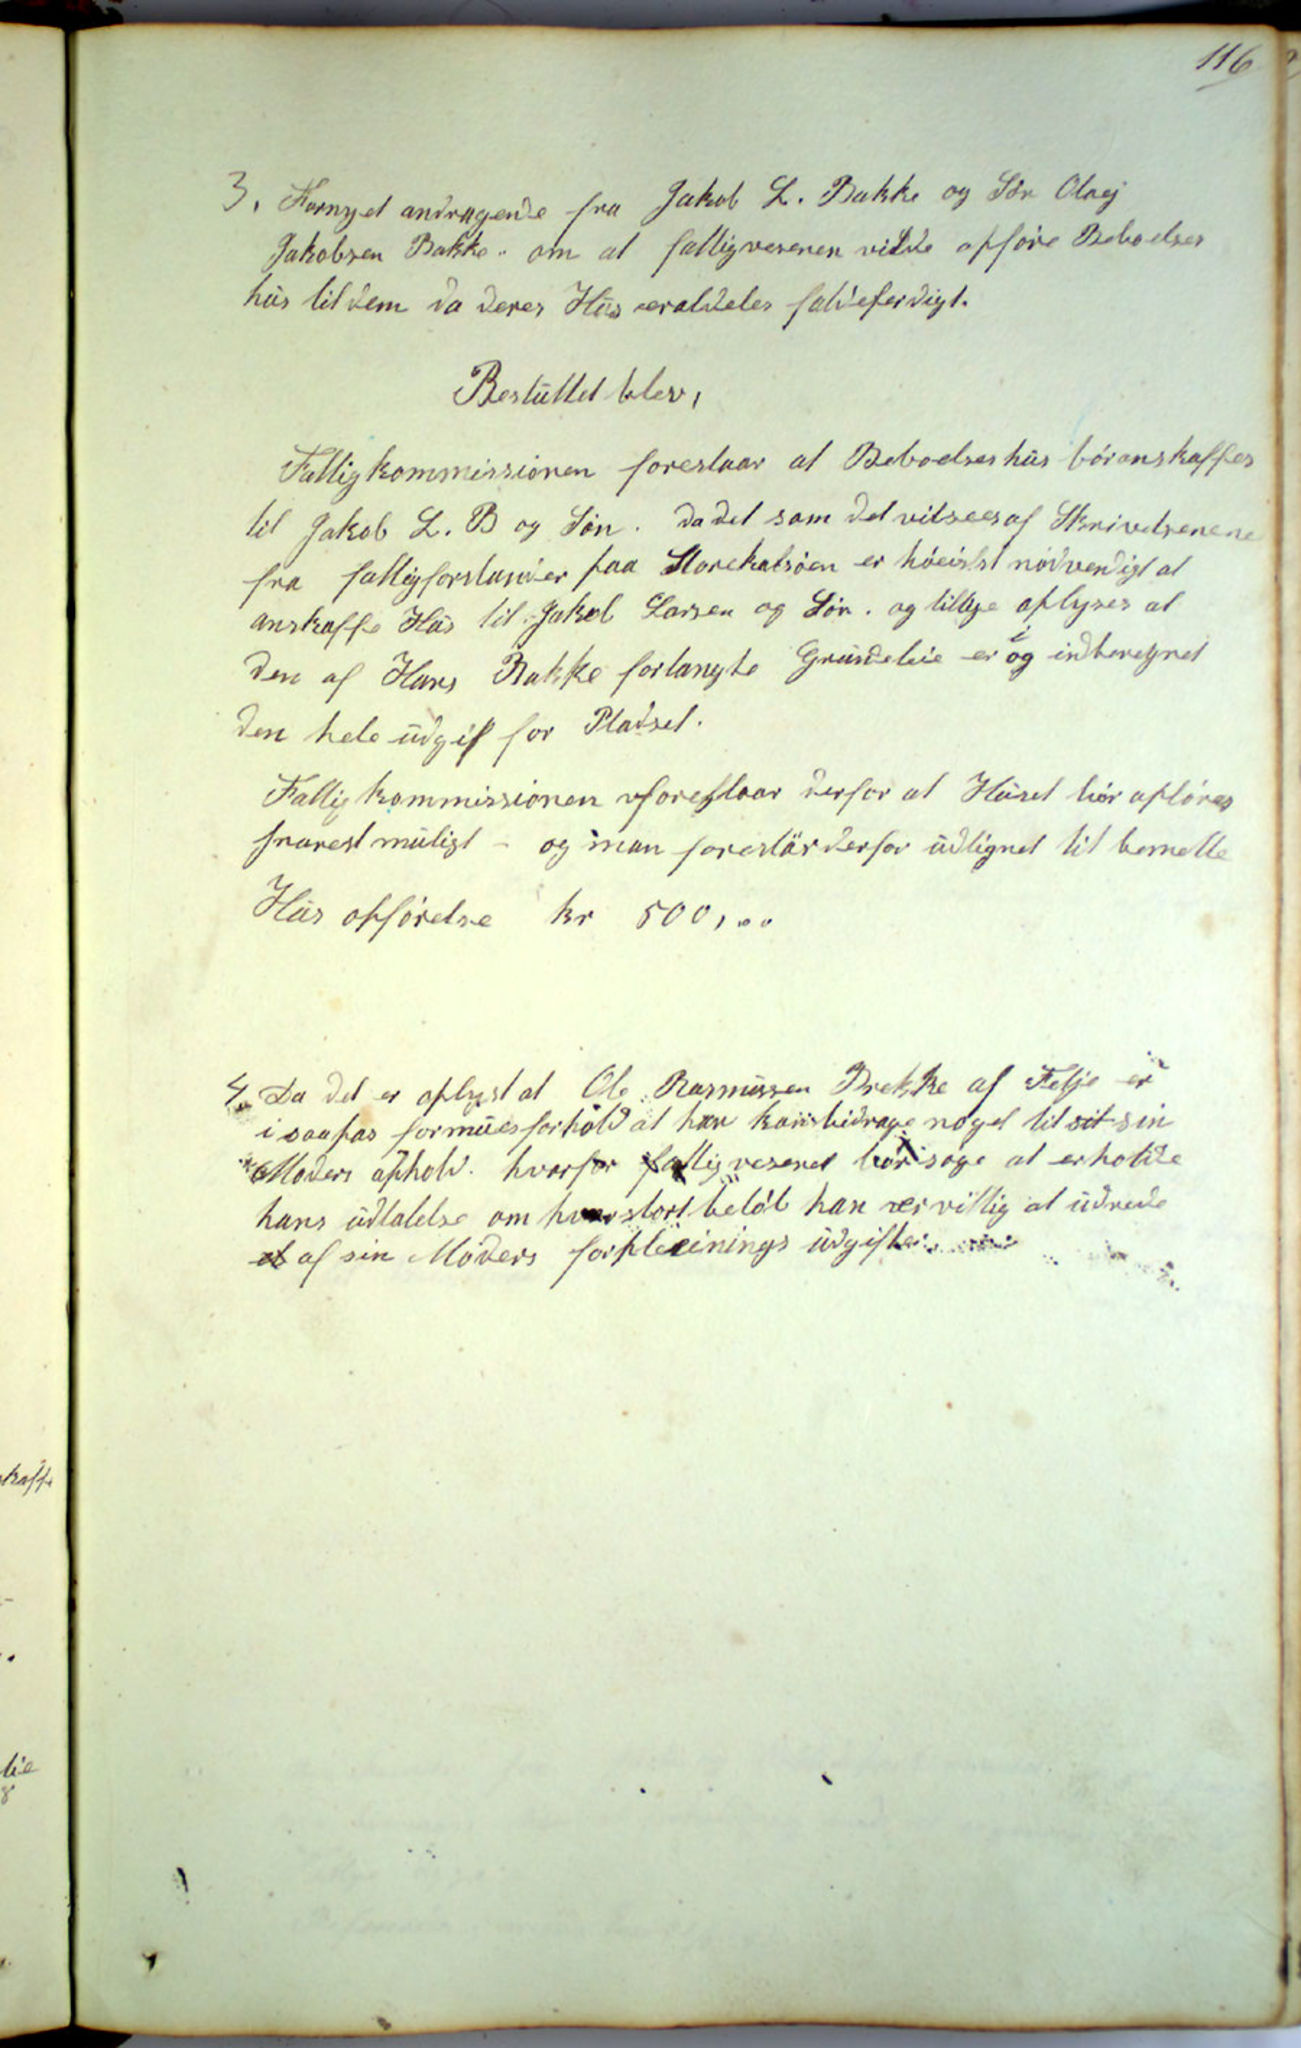 116
3. Fornyet andragende fra Jakob L. Bakke og Søn Olaej
Jakobsen Bakke. om at fattigvesenen vilde opføre Beboelses
hus til dem da deres Hus er aldeles faldeferdigt.
Besluttet blev,
Fattigkommissionen foreslaar at Beboelseshus bør anskaffes
til Jakob L. B og Søn. da det som det vilsees af Skrivelsenene
fra fattigforstander paa Storekalsøen er høeist nødvendigt at
anskaffe Hus til Jakob Larsen og Søn. og tillige oplyses at
den af Hans Bakke forlangte Grundeleie er og i indberegnet
den hele udgift for Pladset.
Fattigkommissionen foreslaar derfor at Huset bør opføres
snarest muligt - og man foreslår derfor udlignet til bemelte
Hus opførelse kr 500,..
4. Da det er oplyst at Ole Rasmussen Brekke af Felje er
i saapas formuesforhold at han kan bidrage noget til sit sin
Moders ophold. hvorfor fattigvesenet bør søge at erholde
hans udtalelse om hvor stort beløb han er villig at udrede
af sin Moders forpleinings udgifter.
kaffe
lie
8